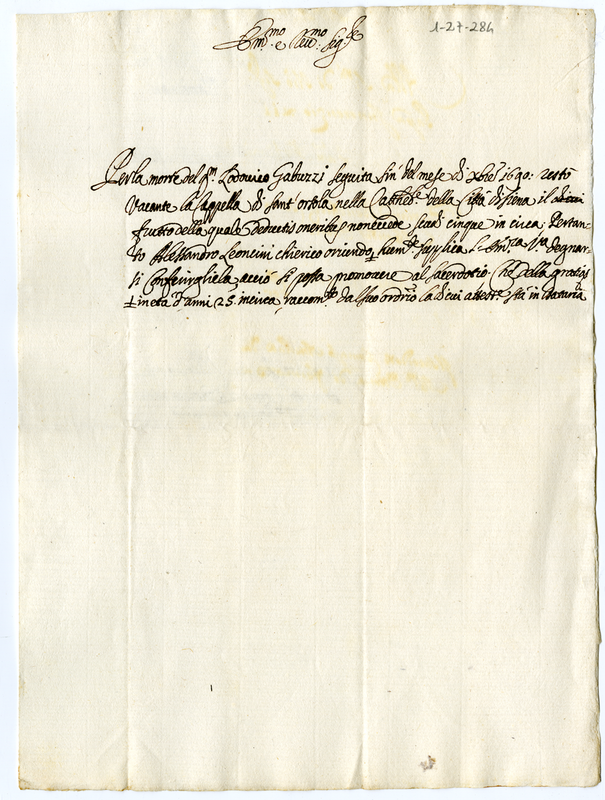 1-27-284
Em.mo e Reu.mo Sig.re
Per la morte del q.m Lodouico Gabuzzi seguita sin' del mese di xbre 1690: restò
Vacante la Cappella di Sant' Orsola nella Cathed.le della Città di Siena il di cui
frutto della quale deductis oneribus non eccede scudi cinque in circa; Pertan=
to Alessandro Leoncini chierico oriundo, hum.te supplica l'Em.za V.ra degnar=
si Conferirgliela, acciò si possa promouere al Sacerdotio. Che della gratia
in età d'anni 25. merica raccom.to dal suo ord.rio la di cui attest.e sta in Dataria